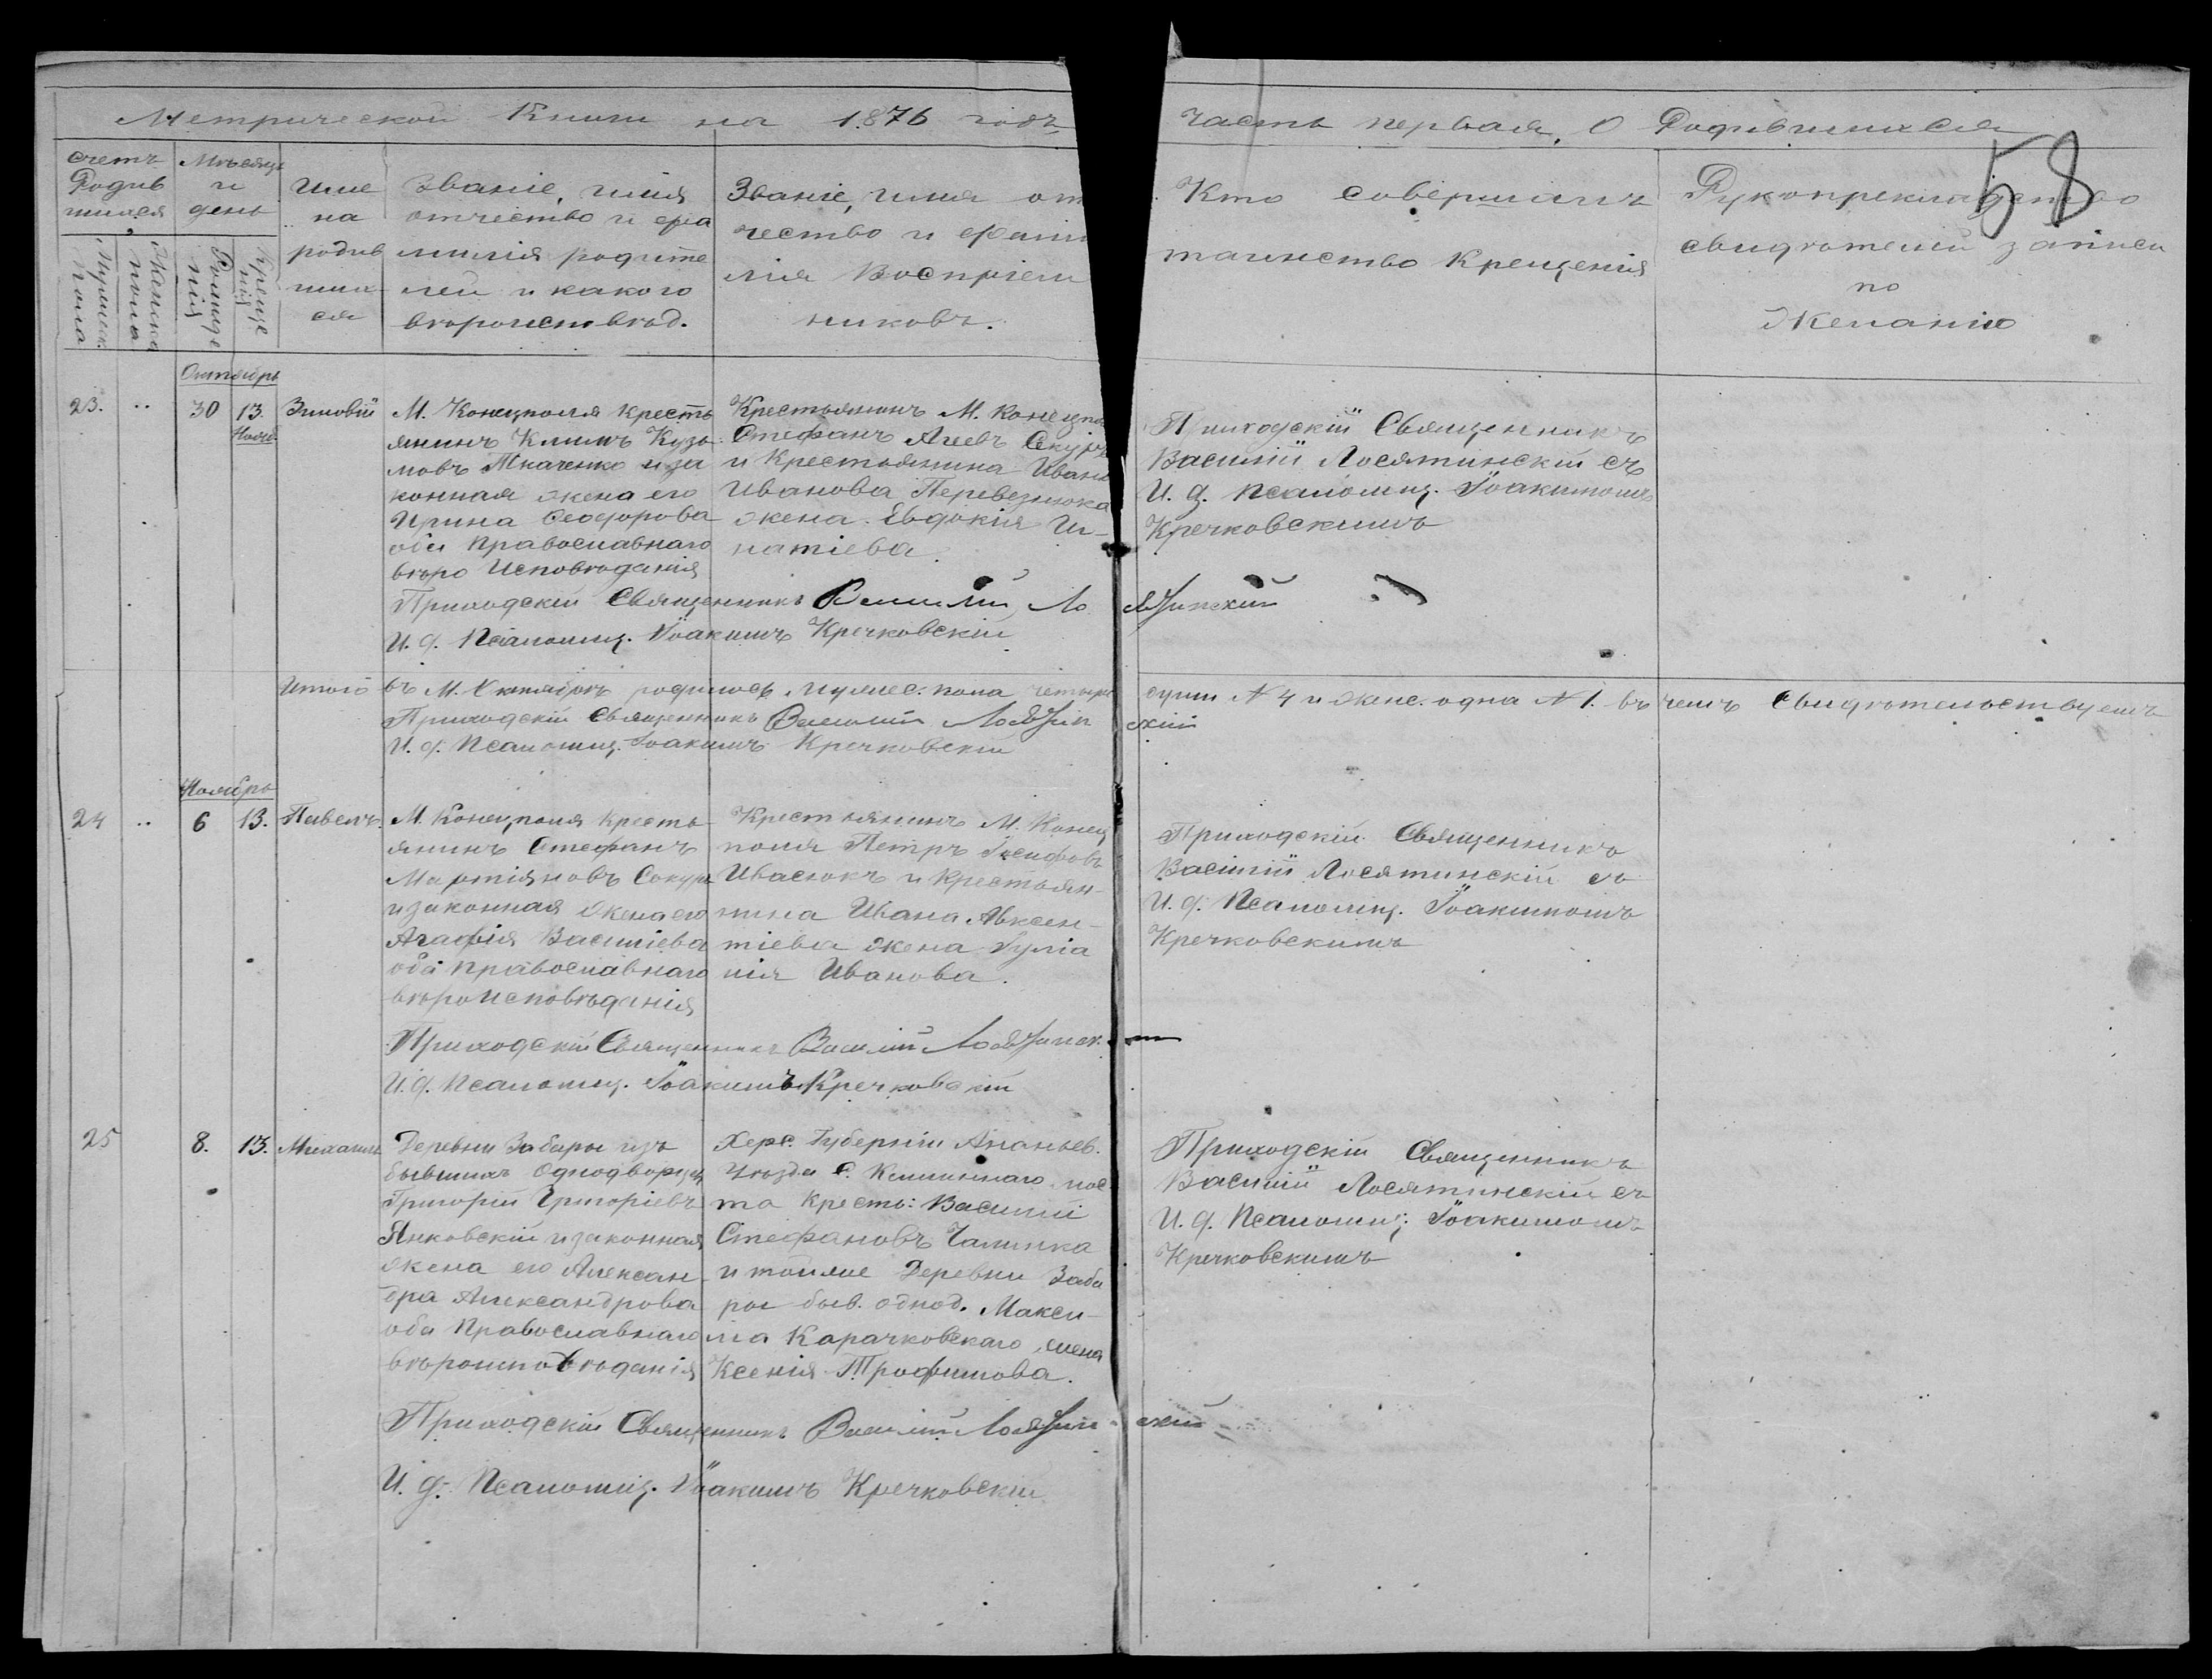 Метрической Книги на 1876 годъ
Часть первая, О Родившихся
58
счетъ Родив шихся
Мужеск. пола
Женска пола
Мѣсяцъ и день
Рожде нія
Креще нія
Име на родив ших ся
Званіе, имя
отчество и фа
милія родите
лей и какого
вѣроисповѣд.
Званіе, имя от
чество и фами
лія Воспріем
никовъ.
Кто совершалъ
таинство Крещенія
Рукоприкладство
свидѣтелей записи
по
Желанію
Октябрь
23. .. 30 13. Нояб. Зиновій
М. Конецполя кресть
янинъ Климъ Кузь
мовъ Ткаченко и за
конная жена его
Ирина Феодорова
оба Православнаго
вѣро Исповѣданія
Крестьянинъ М. Конецпо
Стефанъ Агеевъ
и Крестьянина Ивана
Иванова Перевезнюка
жена Евдокія Иг-
натіева
Приходскій Священникъ
Василій Лосятинскій съ
И. д. псаломщ. Іоакимомъ
Кречковскимъ
Приходскій Священникъ Василій Лосятинскій
И. д. Псаломщ. Іоакимъ Кречковскій
Итого въ М. Октябрѣ родилось мужес. пола четыре
сумм № 4 и женс. одна № 1. въ чемъ Свидѣтельствуемъ
Приходскій Священникъ Василій Лосятинскій
И. д. Псаломщ. Іоакимъ Кречковскій
Ноябрь
24 .. 6 13. Павелъ.
М. Конецполя Кресть
янинъ Стефанъ
Мартіяновъ Сокура
и законная Жена его
Агафія Василіева
оба православнаго
вѣроисповѣданія
Крестьянинъ М. Конец
поля Петръ Іосифовъ
Ивасюкъ и Крестьян-
нина Ивана Авксен-
тіева жена Іуліа
нія Иванова.
Приходскій Священникъ
Василій Лосятинскій съ
И. д. Псаломщ. Іоакимомъ
Кречковскимъ
Приходскій Священникъ Василій Лосятинск.
И. д. Псаломщ. Іоакимъ Кречковскій
25 8. 13. Михаилъ
Деревни Забары изъ
бывшихъ Однодворцъ
Григорій Григоріевъ
Янковскій и законная
жена его Алексан-
дра Александрова
оба Православнаго
вѣроисповѣданія
Херс. Губерніи Ананьев.
Уѣзда С. Каминнаго мос
та Кресть: Василій
Стефановъ Чалинка
и тойже Деревни Заба
ры быв. однод. Макси-
ма Карачковскаго жена
Ксенія Трофимова.
Приходскій Священникъ
Василій Лосятинскій съ
И. д. Псаломщ. Іоакимомъ
Кречковскимъ
Приходскій Священникъ Василій Лосятинскій
И. д. Псаломщ. Іоакимъ Кречковскій